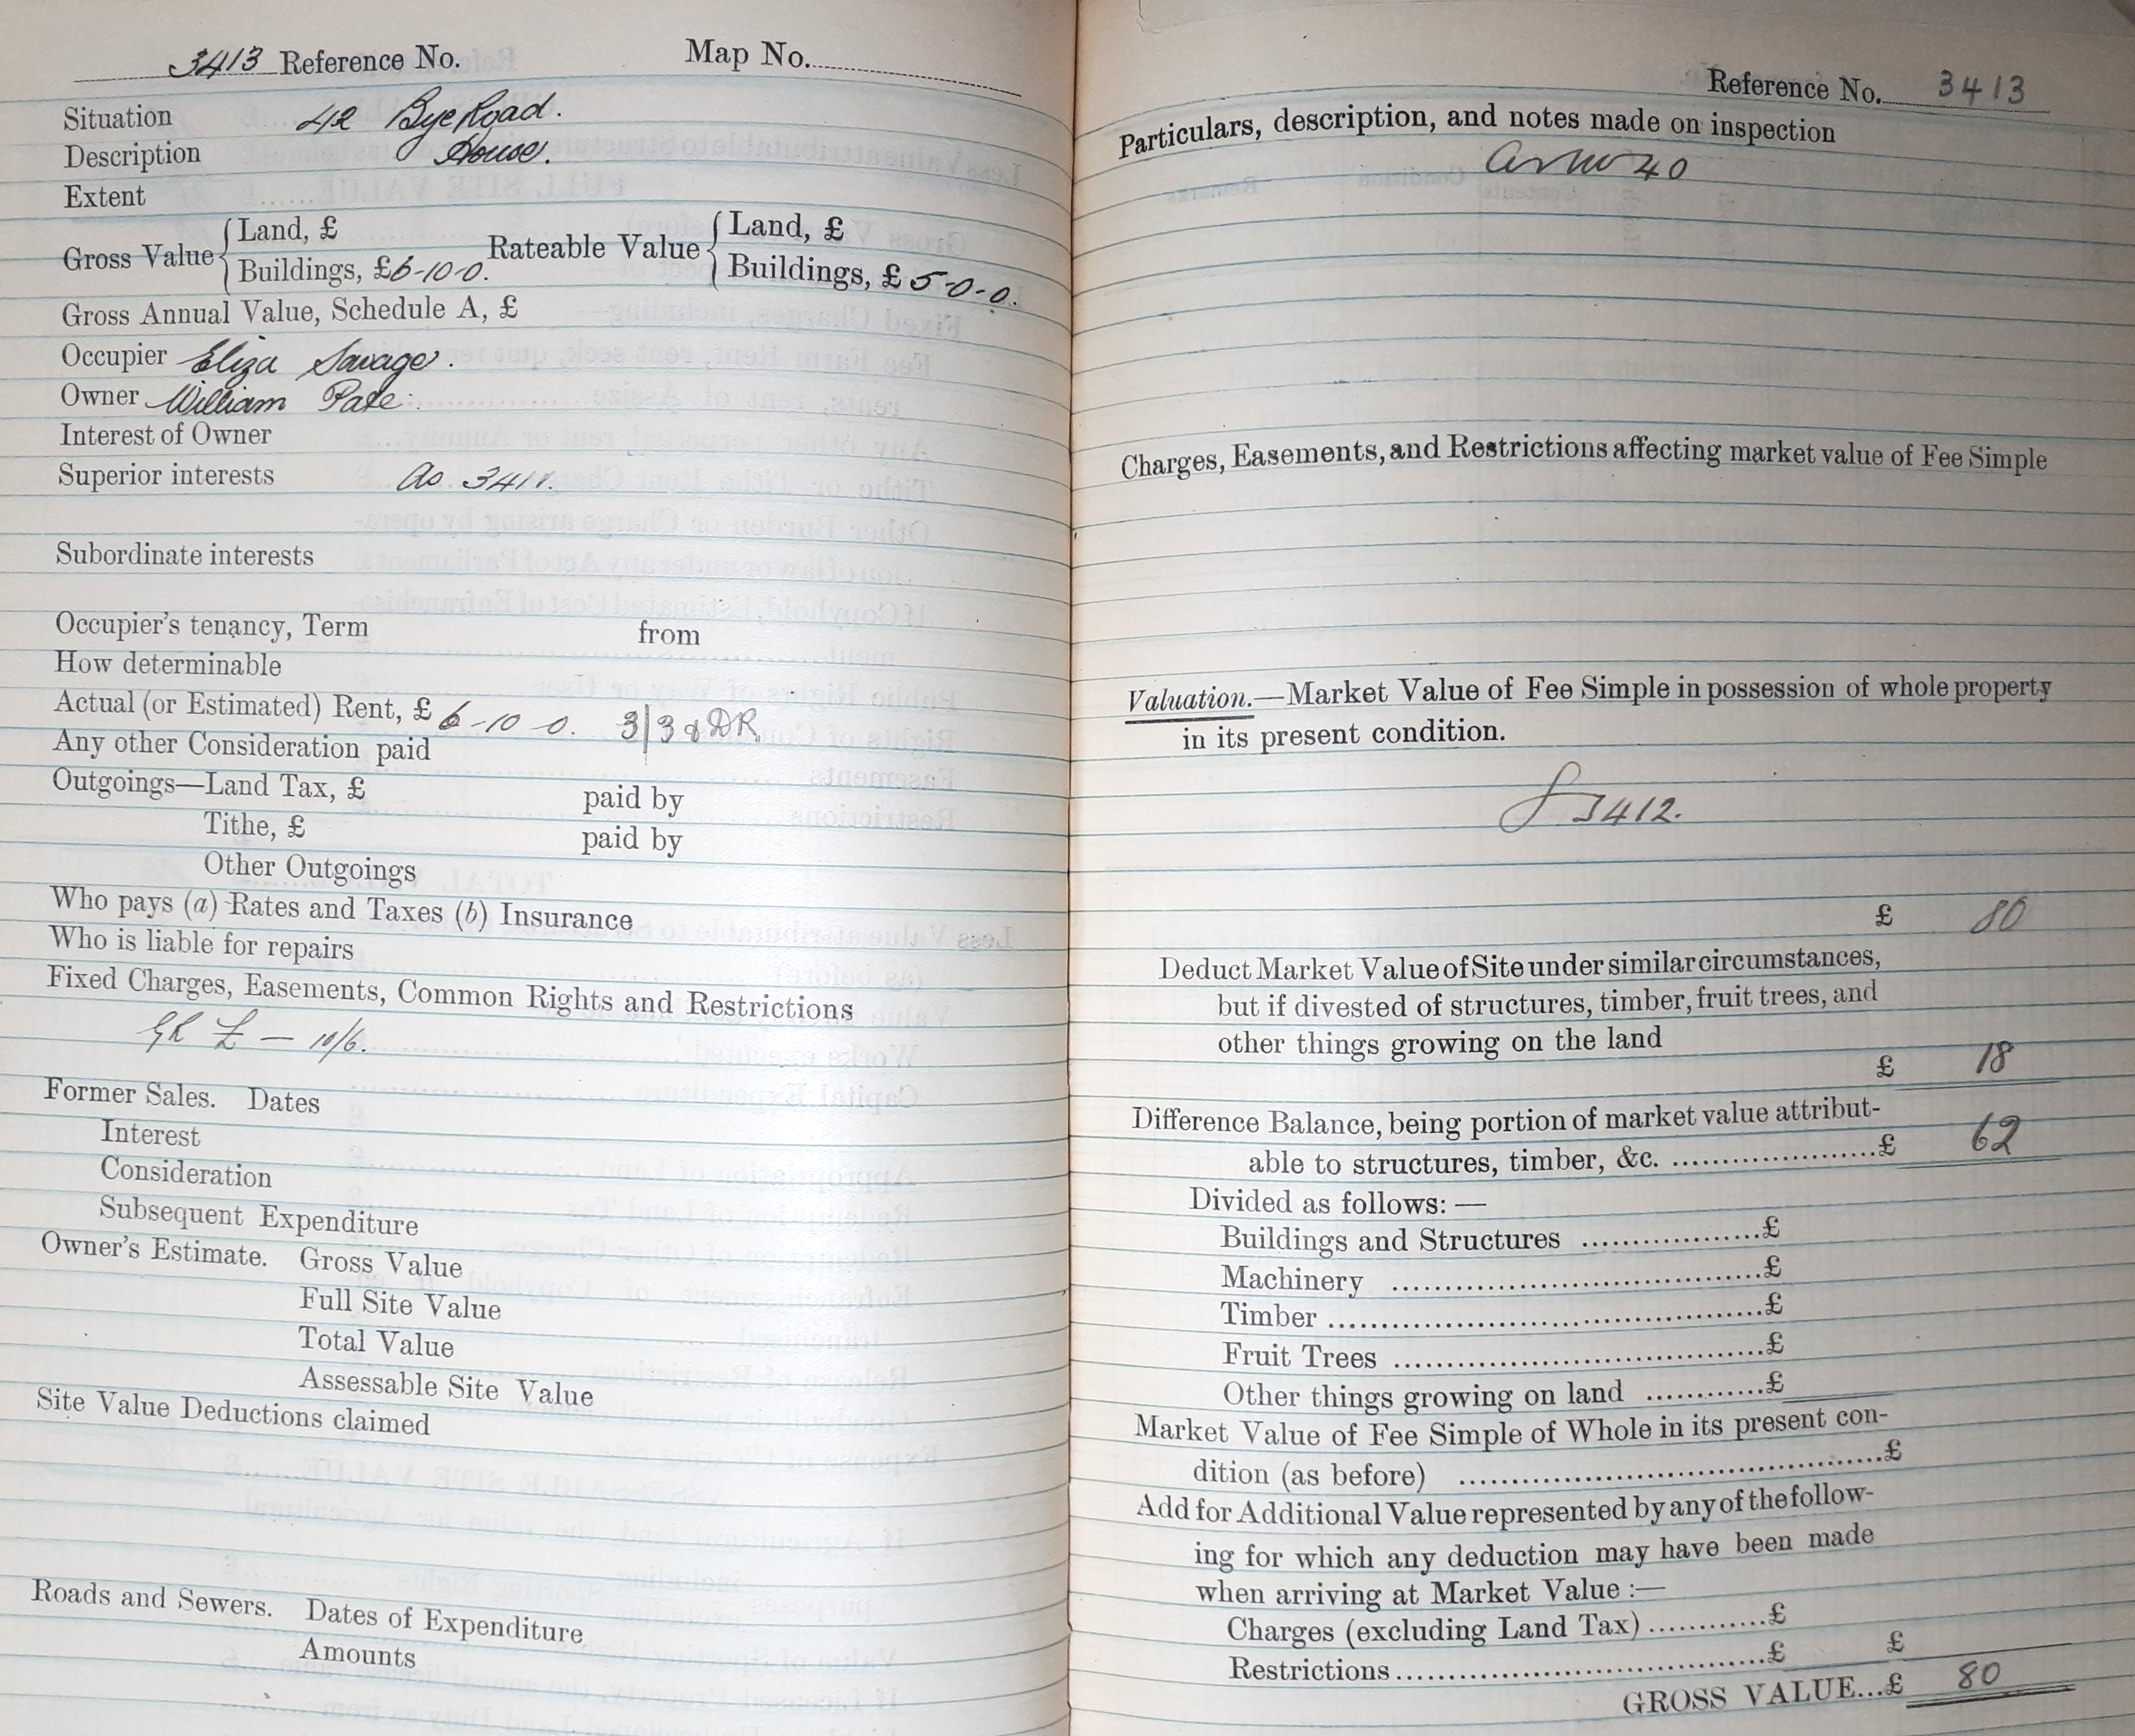 3413 Reference No. Map No.
Situation 42 Bye Road.
Description House.
Extent
Gross Value { Land, £ Rateable Value { Land, £
Buildings, £6-10-0. Buildings, £ 5-0-0.
Gross Annual Value, Schedule A, £
Occupier Eliza Savage.
Owner William Pate.
Interest of Owner
Superior interests As 3411.
Subordinate interests
Occupier's tenancy, Term from
How determinable
Actual (or Estimated) Rent, £ 6-10-0. 3/3 & DR
Any other Consideration paid
Outgoings—Land Tax, £ paid by
Tithe, £ paid by
Other Outgoings
Who pays (a) Rates and Taxes (b) Insurance
Who is liable for repairs
Fixed Charges, Easements, Common Rights and Restrictions
GR £ — 10/6.
Former Sales. Dates
Interest
Consideration
Subsequent Expenditure
Owner's Estimate. Gross Value
Full Site Value
Total Value
Assessable Site Value
Site Value Deductions claimed
Roads and Sewers. Dates of Expenditure
Amounts
Reference No. 3413
Particulars, description, and notes made on inspection
as no 40
Charges, Easements, and Restrictions affecting market value of Fee Simple
Valuation.—Market Value of Fee Simple in possession of whole property
in its present condition.
3412.
£ 80
Deduct Market Value of Site under similar circumstances,
but if divested of structures, timber, fruit trees, and
other things growing on the land
£ 18
Difference Balance, being portion of market value attribut-
able to structures, timber, &c. ....................£ 62
Divided as follows: —
Buildings and Structures .................£
Machinery ...................................£
Timber .........................................£
Fruit Trees ...................................£
Other things growing on land ...........£
Market Value of Fee Simple of Whole in its present con-
dition (as before) ........................................£
Add for Additional Value represented by any of the follow-
ing for which any deduction may have been made
when arriving at Market Value :—
Charges (excluding Land Tax) ...........£
Restrictions ...................................£ £
GROSS VALUE...£ 80